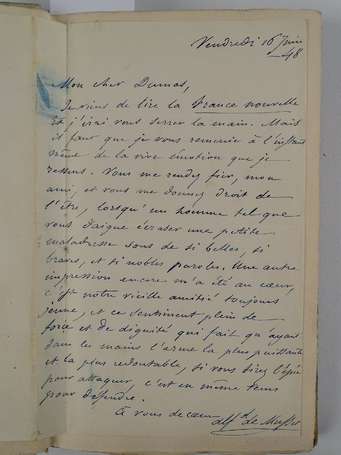 Vendredi 16 Juin
—48
Mon cher Dumas,
Je viens de lire la France nouvelle
et j'irai vous serrer la main. Mais
il faut que je vous remercie à l'instant
même de la vive émotion que je
ressens. Vous me rendez fier, mon
ami, et vous me donnez droit de
l'être, lorsqu'un homme tel que
vous daigne écraser une petite
maladresse sous de si belles, si
braves, et si nobles paroles. Une autre
impression encore m'a été au cœur,
c'est notre vieille amitié toujours
jeune, et ce sentiment plein de
force et de dignité qui fait qu'ayant
dans les mains l'arme la plus puissante
et la plus redoutable, si vous tirez l'épée
pour attaquer, c'est en même tems
pour défendre.
à vous de cœur
Alf d de Musset